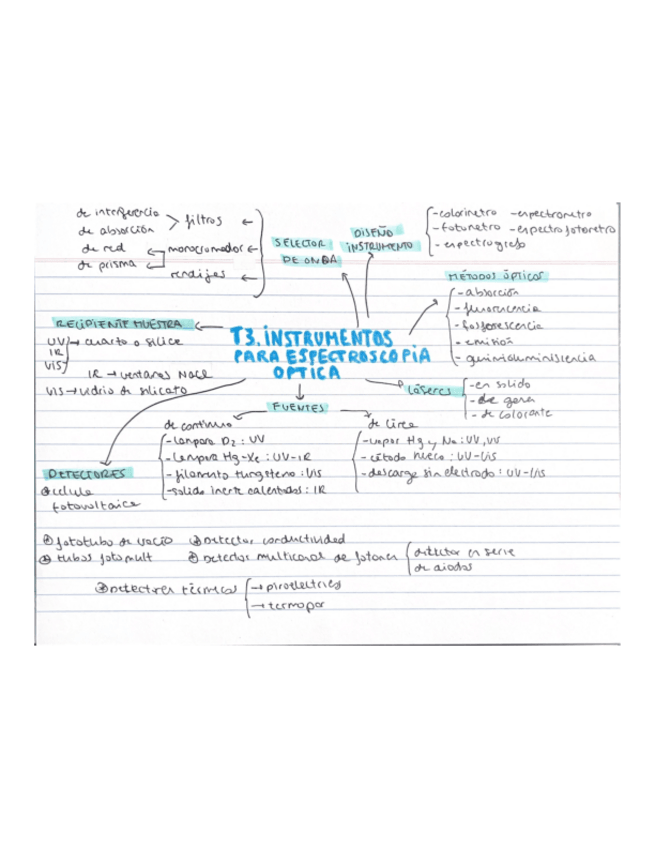 T3. INSTRUMENTOS
PARA ESPECTROSCOPIA
OPTICA
SELECTOR
DE ONDA
filtros
de interferencia
de absorción
monocromador
de red
de prisma
rendijas
DISEÑO
INSTRUMENTO
-colorimetro -espectrometro
-fotometro -espectrofotometro
-espectrografo
MÉTODOS ÓPTICOS
-absorción
-fluorescencia
-fosforescencia
-emisión
-quimioluminiscencia
LÁSERES
-en solido
-de gases
-de colorante
FUENTES
de continuo
-Lampara D2: UV
-Lampara Hg-Xe: UV-IR
-filamento tungsteno: VIS
-solido inerte calentados: IR
de linea
-vapor Hg y Na: UV, UV
-cátodo hueco: UV-VIS
-descarga sin electrodo: UV-VIS
RECIPIENTE MUESTRA
UV → cuarzo o silice
IR
VIS
IR → ventanas NaCl
VIS → vidrio de silicato
DETECTORES
celula
fotovoltaica
fototubo de vacio detector conductividad
tubos fotomult detector multicanal de fotones
detector en serie
de diodos
Detectores térmicos
→ piroelectrico
→ termopar